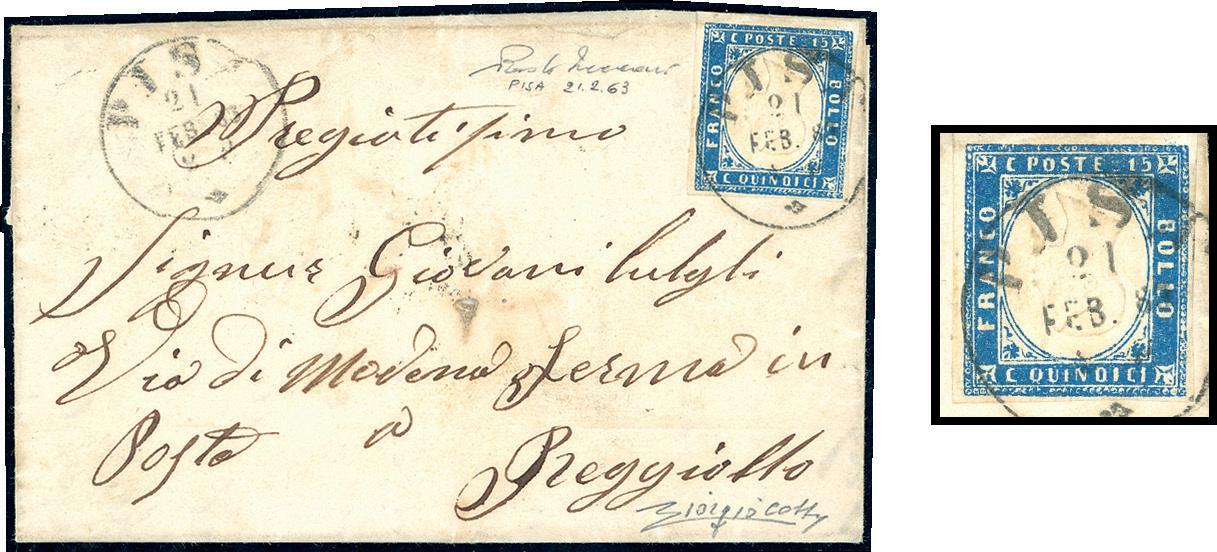 PIS
21
FEB. 63
PISA 21.2.63
C POSTE 15
FRANCO
BOLLO
C QUINDICI
PIS
21
FEB. 6
Pregiatissimo
Signor Giovani
Via di Modena ferma in
Posta a Reggiollo
Giorgio Colla
C POSTE 15
FRANCO
BOLLO
C QUINDICI
PIS
21
FEB. 6